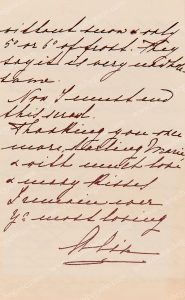 without snow & only
5° or 6° of frost. They
say it is very
same.
Now I must end
this scrawl.
Thanking you once
more, darling
& with much love
& many kisses
I remain ever
Yr most loving
Alix